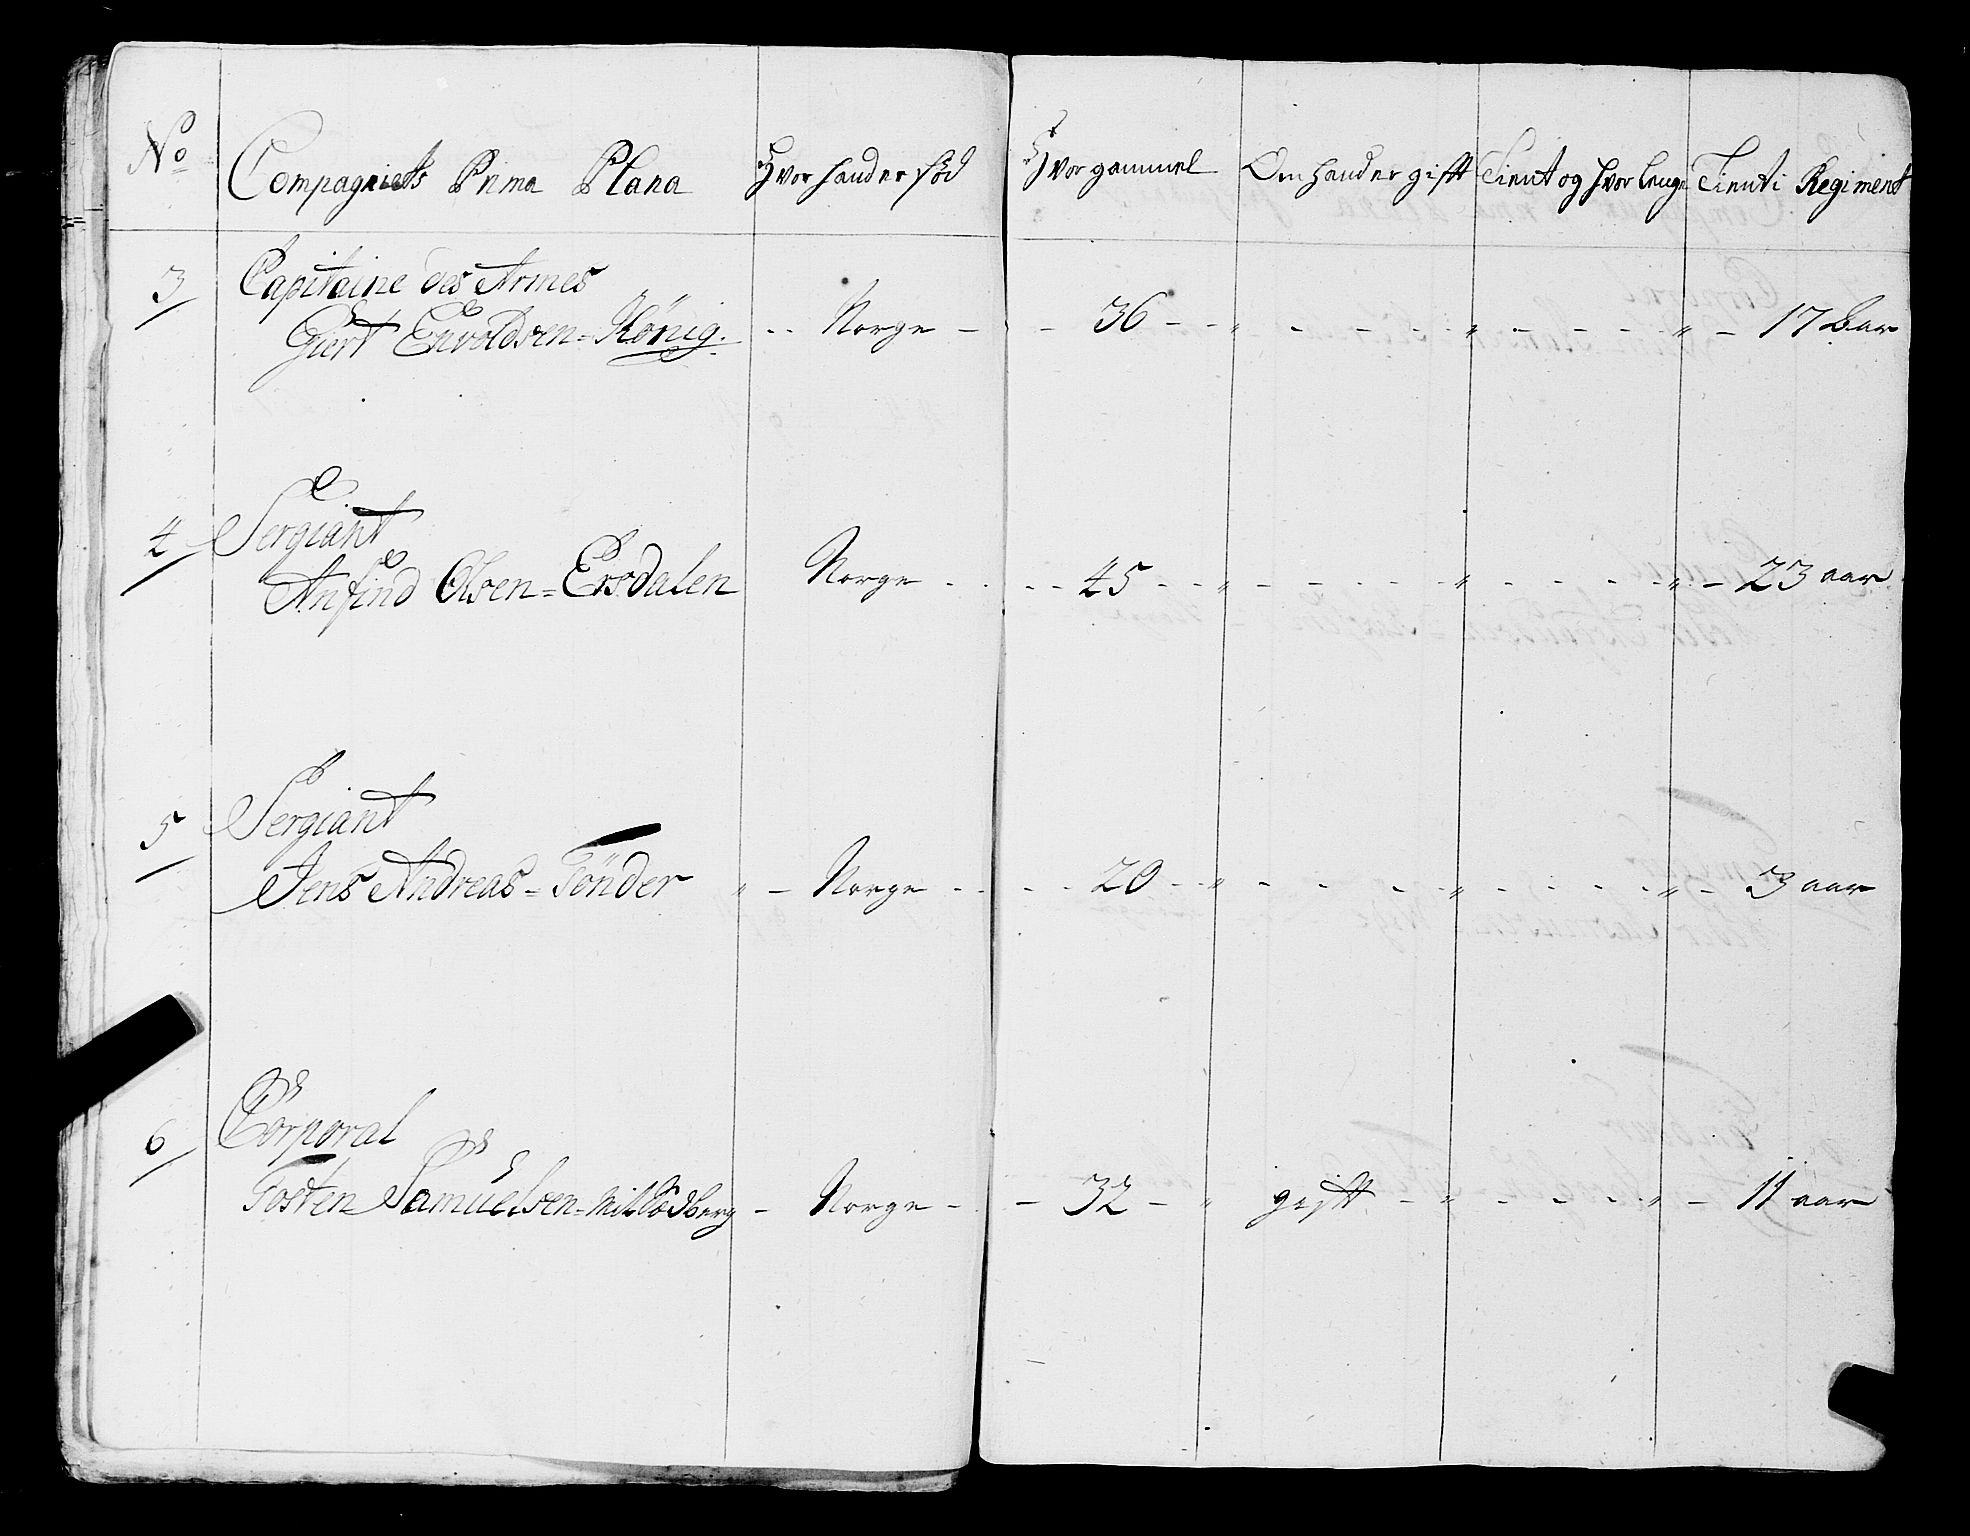 No Compagniets Prima Plana Hvor hand er föd Hvor gammel Om hand er gift Tient og hvor lenge Tient i Regiment
3 Capitaine des Armes
Giert Envoldsen = König. Norge 36 " " " 17 aar
4 Sergiant
Anfind Olsen = Ersdalen Norge 45 " " " 23 aar
5 Sergiant
Jens Andreas = Tönder " Norge 20 " " " 3 aar
6 Corporal
Tosten Samuelsen = Norge 32 " gift " " 11 aar